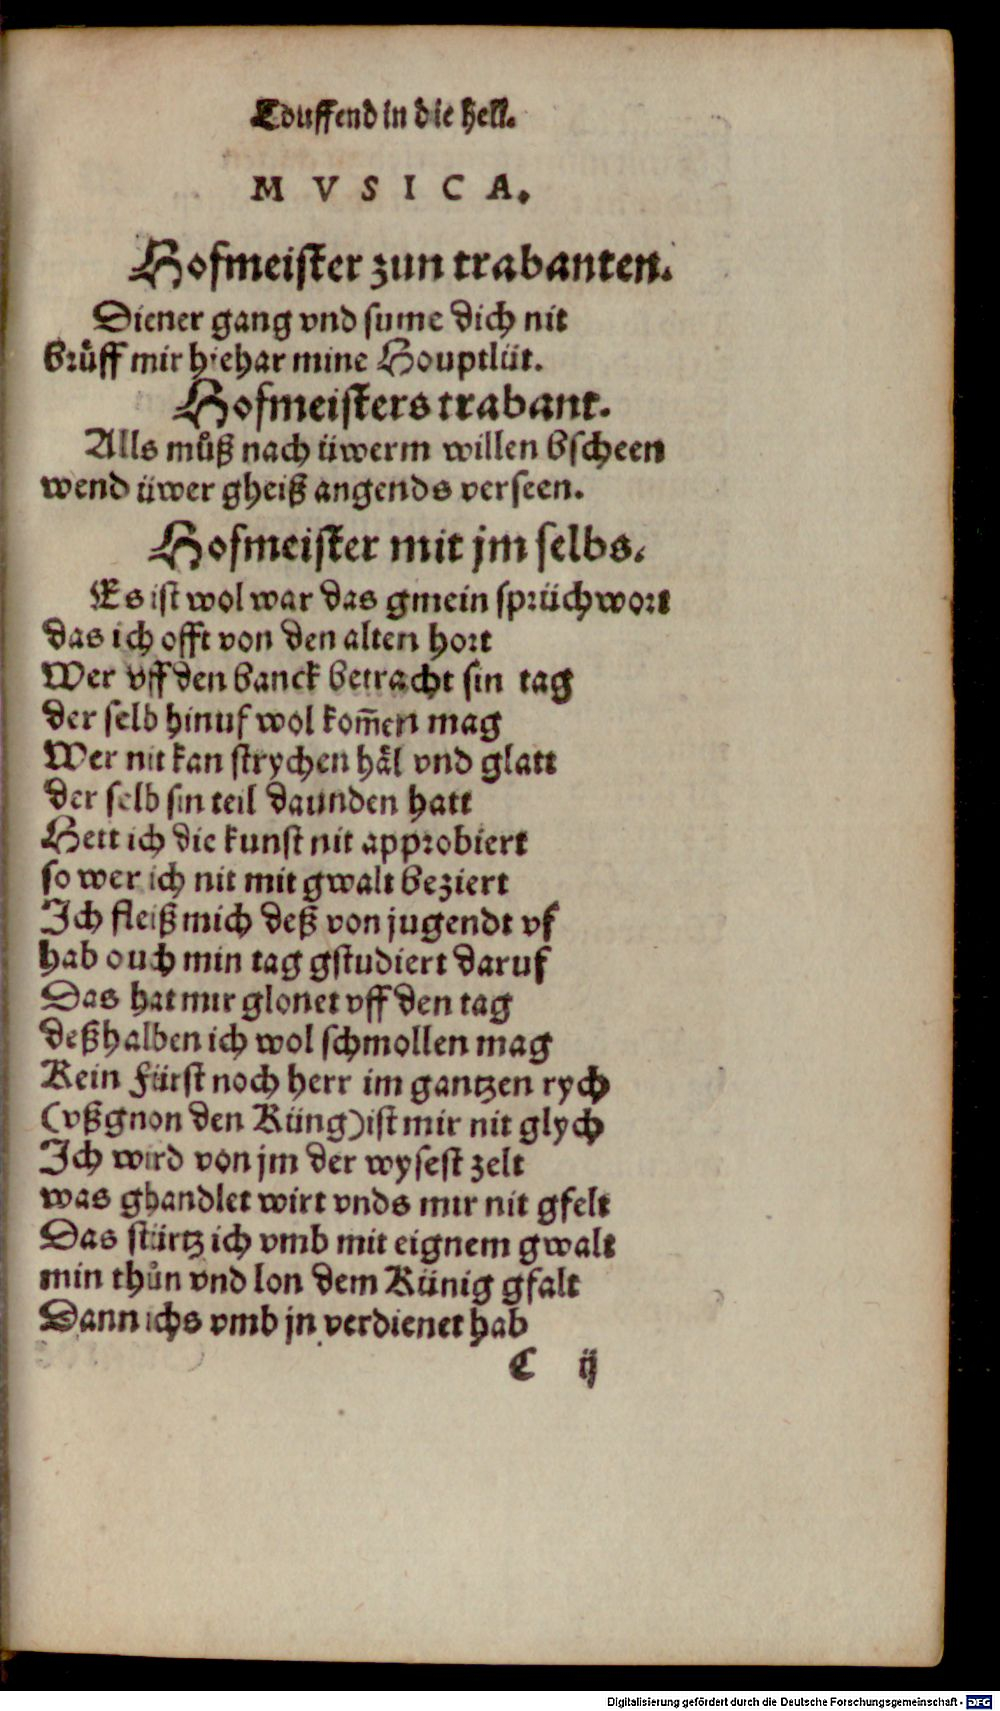 Louffend in die hell.
MVSICA.
Hofmeister zun trabanten.
Diener gang vnd sume dich nit
brůff mir hiehar mine Houptlüt.
Hofmeisters trabant.
Alls můß nach üwerm willen bscheen
wend üwer gheiß angends verseen.
Hofmeister mit jm selbs.
Es ist wol war das gmein sprüchwort
das ich offt von den alten hort
Wer vff den banck betracht sin tag
der selb hinuf wol kom̄en mag
Wer nit kan strychen häl vnd glatt
der selb sin teil daunden hatt
Hett ich die kunst nit approbiert
so wer ich nit mit gwalt beziert
Ich fleiß mich deß von jugendt vf
hab ouch min tag gstudiert daruf
Das hat mir glonet vff den tag
deßhalben ich wol schmollen mag
Kein Fürst noch herr im gantzen rych
(vßgnon den Küng) ist mir nit glych
Ich wird von jm der wysest zelt
was ghandlet wirt vnds mir nit gfelt
Das stürtz ich vmb mit eignem gwalt
min thůn vnd lon dem Künig gfalt
Dann ichs vmb jn verdienet hab
C ij
Digitalisierung gefördert durch die Deutsche Forschungsgemeinschaft - DFG